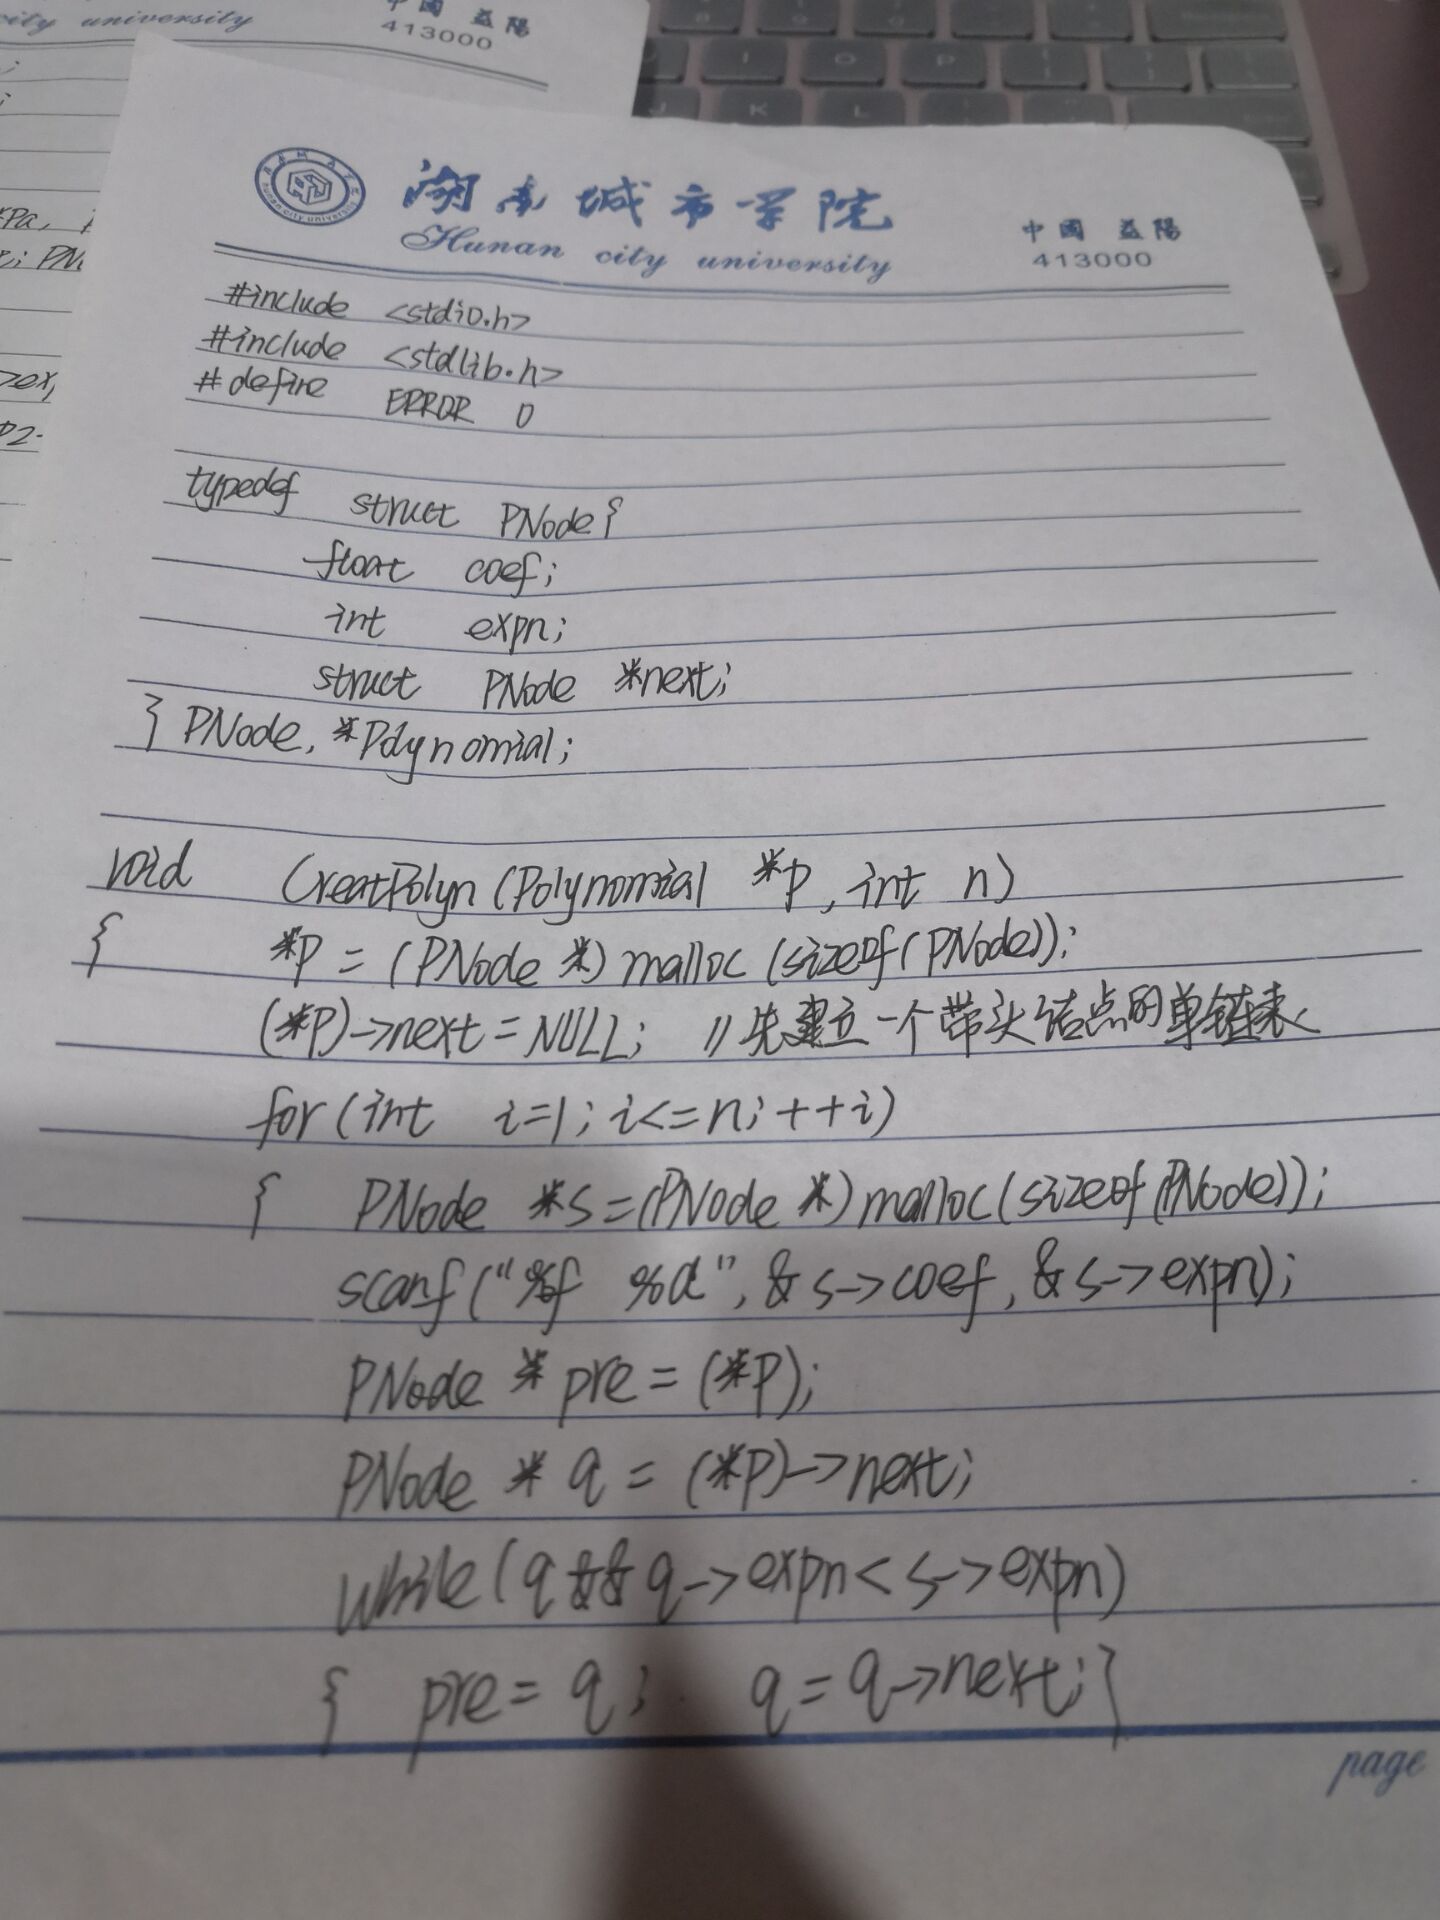 city university
中國 益陽
413000
湖南城市学院
Hunan city university
中國 益陽
413000
#include <stdio.h>
#include <stdlib.h>
#define ERROR 0
typedef struct PNode{
float coef;
int expn;
struct PNode *next;
} PNode, *Polynomial;
void CreatPolyn(Polynomial *p, int n)
{ *p = (PNode *) malloc (sizeof(PNode));
(*p)->next = NULL; //先建立一个带头结点的单链表
for(int i=1; i<=n; ++i)
{ PNode *s=(PNode *) malloc(sizeof(PNode));
scanf("%f %d", &s->coef, &s->expn);
PNode *pre = (*p);
PNode *q = (*p)->next;
while(q && q->expn < s->expn)
{ pre = q; q = q->next;}
page